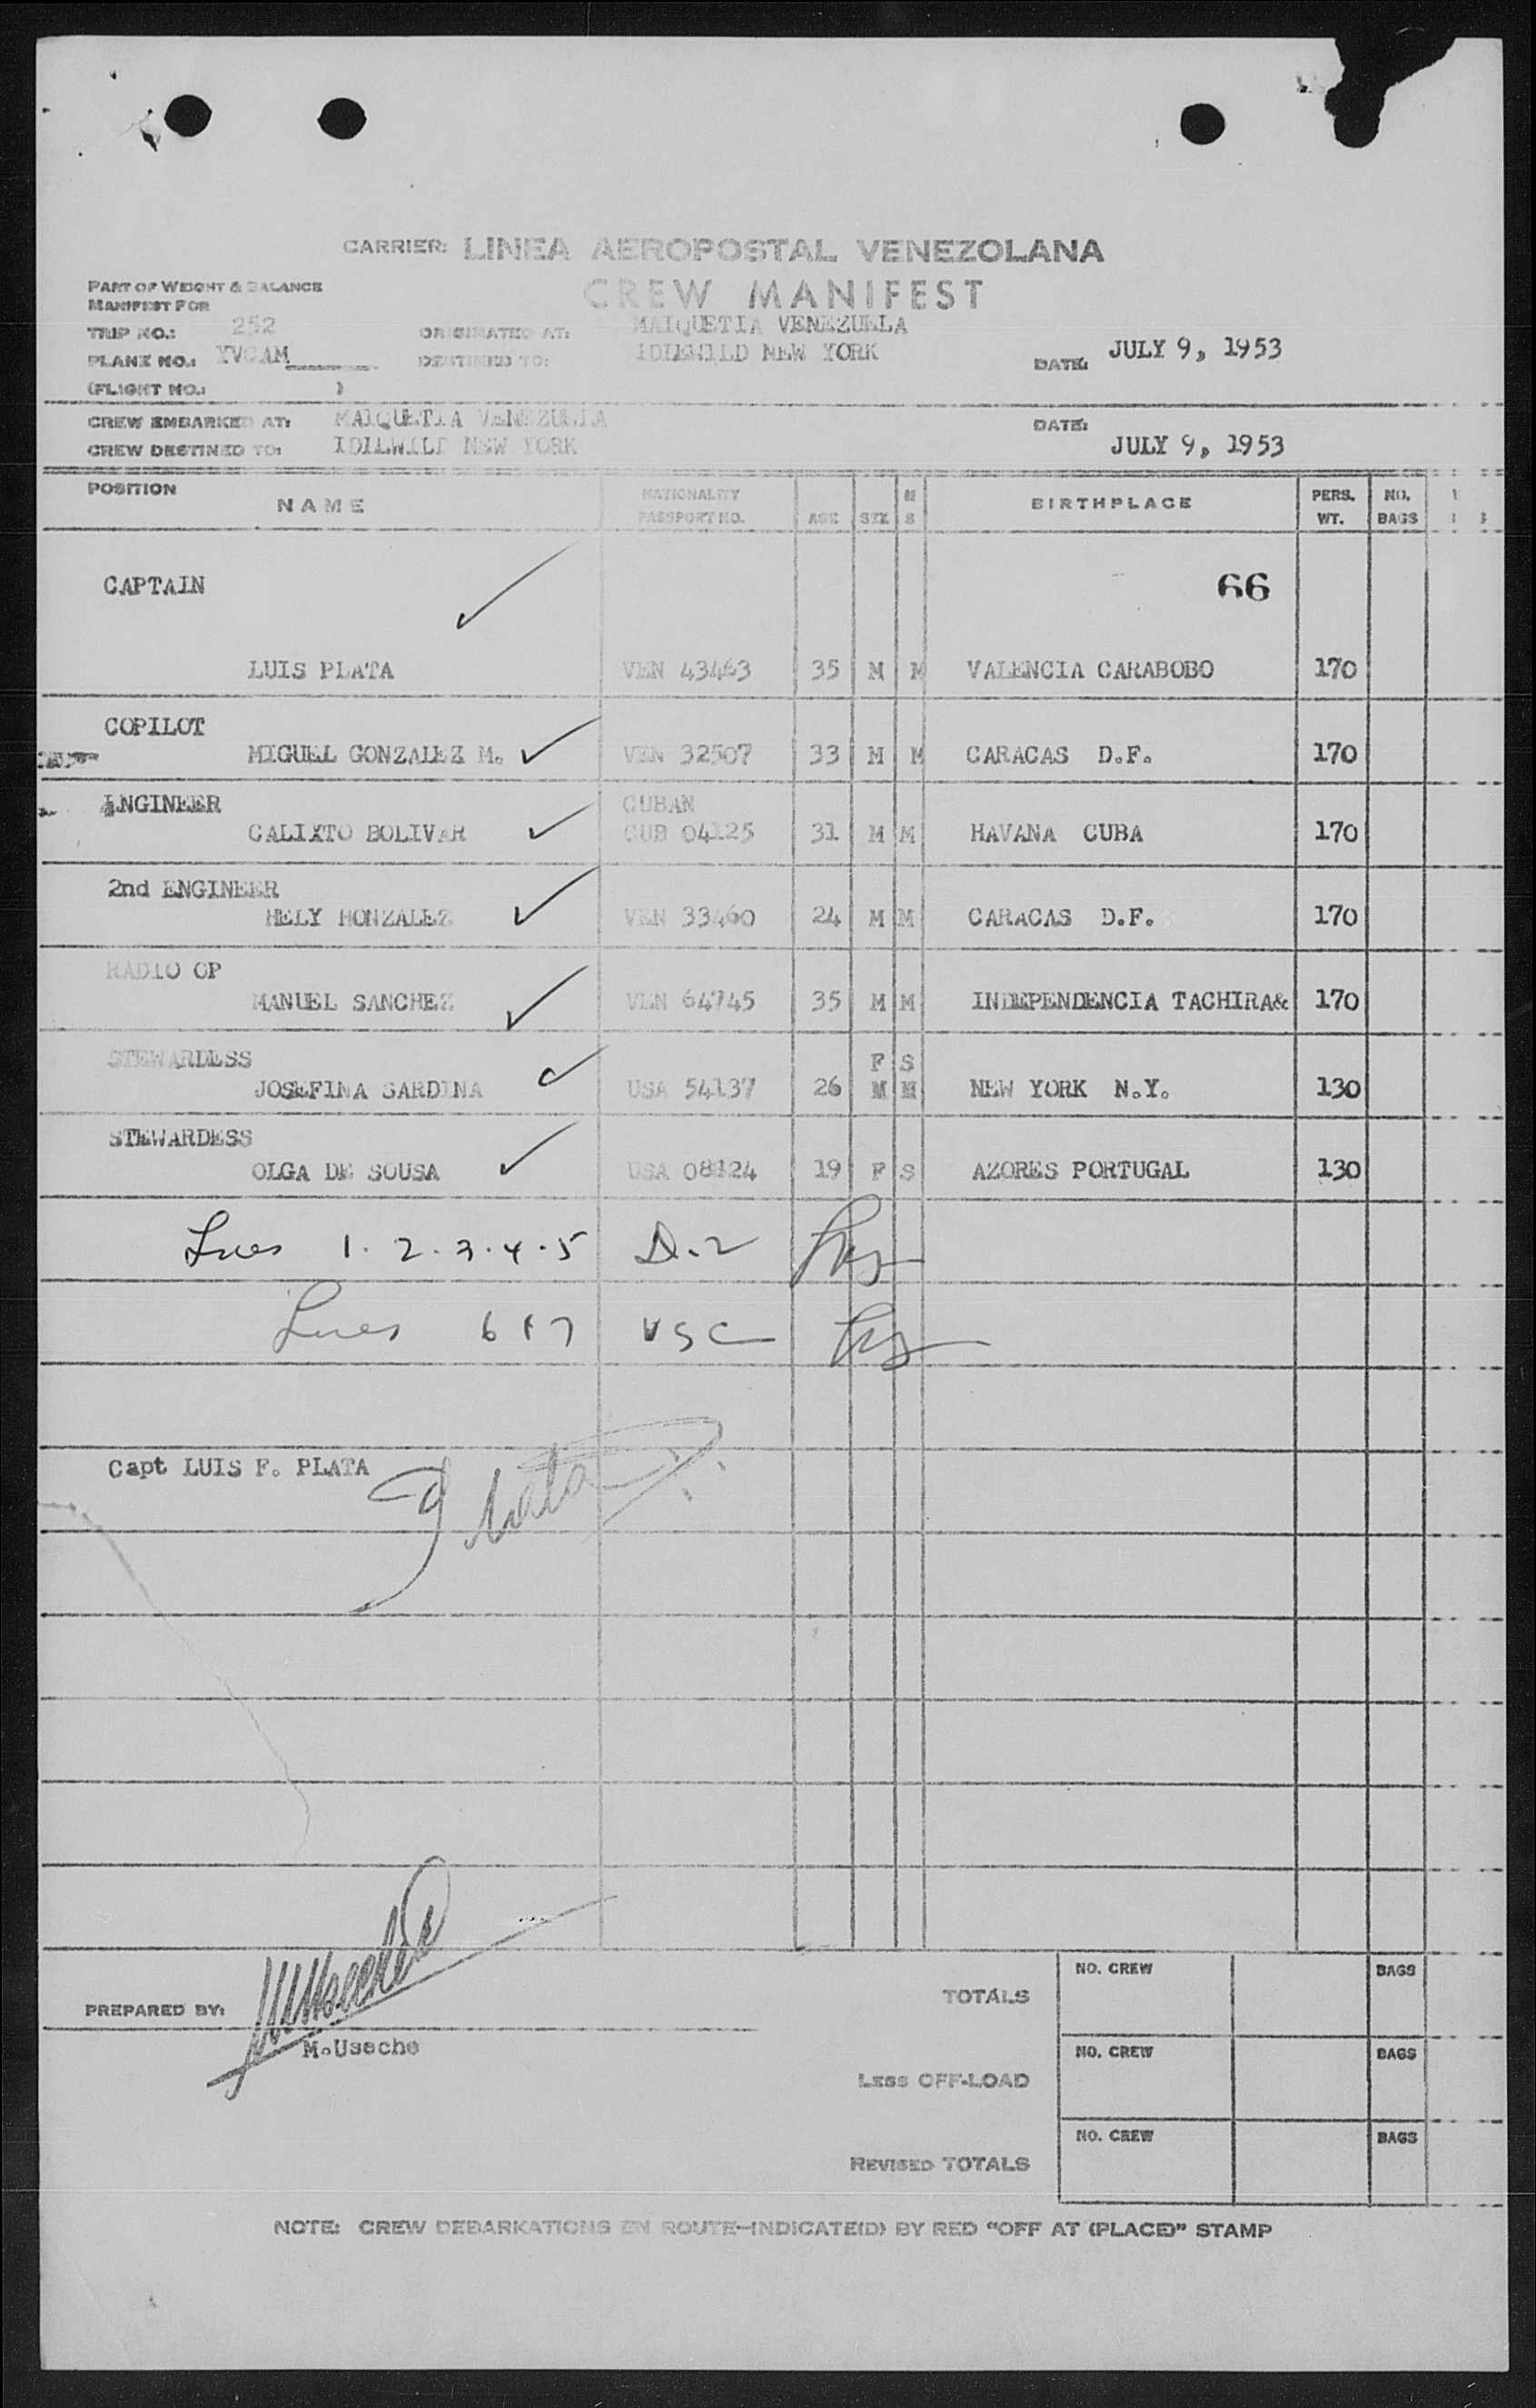 CARRIER: LINEA AEROPOSTAL VENEZOLANA
CREW MANIFEST
PART OF WEIGHT & BALANCE
MANIFEST FOR
TRIP NO.: 252 ORIGINATED AT: MAIQUETIA VENEZUELA
PLANE NO.: YVCAM DESTINED TO: IDLEWILD NEW YORK DATE: JULY 9, 1953
(FLIGHT NO.: )
CREW EMBARKED AT: MAIQUETIA VENEZUELA DATE:
CREW DESTINED TO: IDLEWILD NEW YORK JULY 9, 1953
POSITION NAME NATIONALITY PASSPORT NO. AGE SEX M S BIRTHPLACE PERS. WT. NO. BAGS
CAPTAIN 66
LUIS PLATA VEN 43463 35 M M VALENCIA CARABOBO 170
COPILOT
MIGUEL GONZALEZ M. VEN 32507 33 M M CARACAS D.F. 170
ENGINEER CUBAN
CALIXTO BOLIVAR CUB 04125 31 M M HAVANA CUBA 170
2nd ENGINEER
HELY HONZALEZ VEN 33460 24 M M CARACAS D.F. 170
RADIO OP
MANUEL SANCHEZ VEN 64745 35 M M INDEPENDENCIA TACHIRA& 170
STEWARDESS F S
JOSEFINA SARDINA USA 54137 26 M M NEW YORK N.Y. 130
STEWARDESS
OLGA DE SOUSA USA 08124 19 F S AZORES PORTUGAL 130
Lines 1. 2. 3. 4. 5 D.2
Lines 6 & 7 USC
Capt LUIS F. PLATA
PREPARED BY:
M.Useche
TOTALS NO. CREW BAGS
LESS OFF-LOAD NO. CREW BAGS
REVISED TOTALS NO. CREW BAGS
NOTE: CREW DEBARKATIONS EN ROUTE—INDICATE(D) BY RED "OFF AT (PLACE)" STAMP